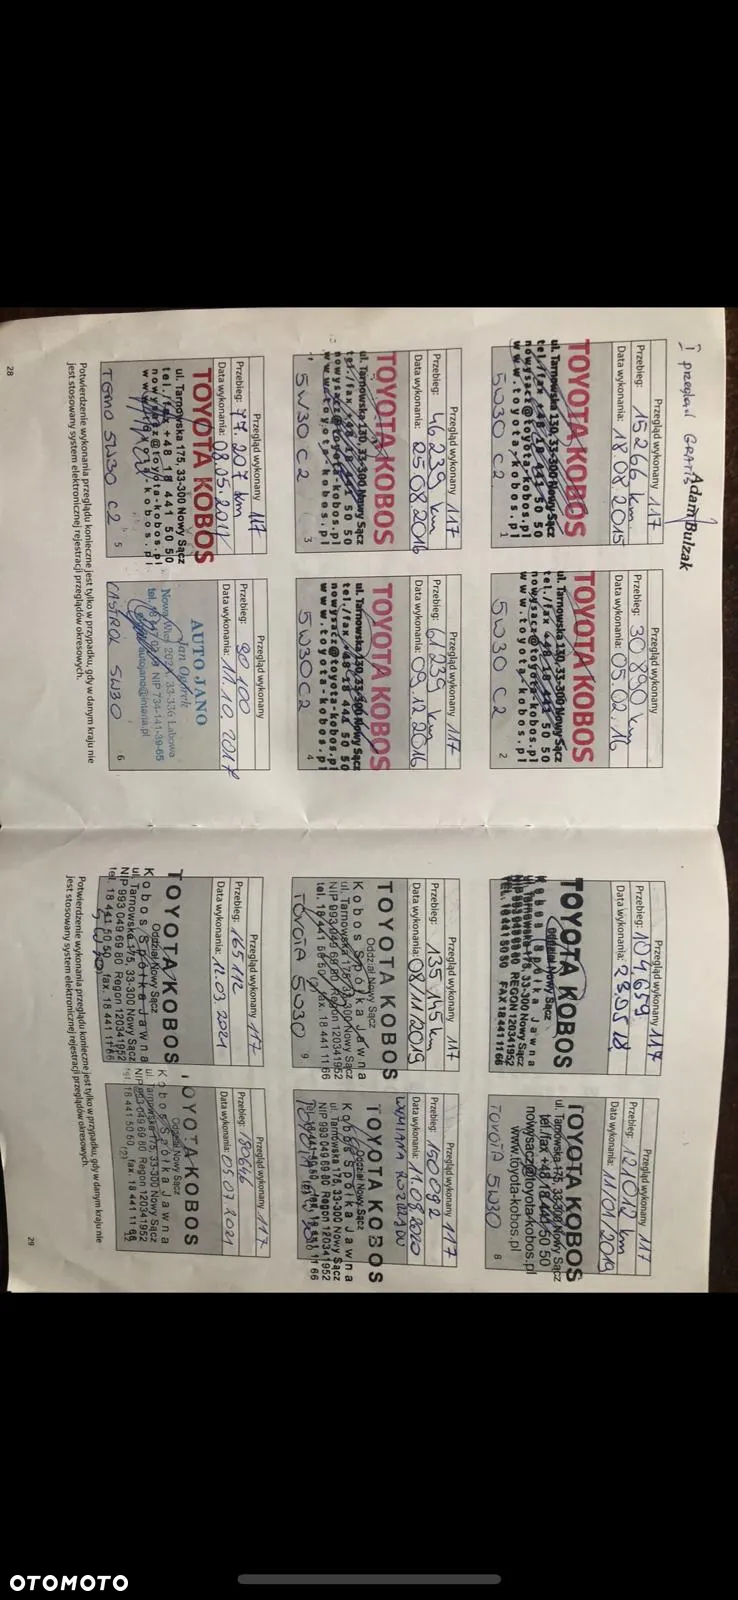 I przegląd GRATIS Adam Bulzak
Przegląd wykonany 117
Przebieg: 15266 km
Data wykonania: 18 08 2015
TOYOTA KOBOS
ul. Tarnowska 130, 33-300 Nowy Sącz
tel./fax +48 18 441 50 50
nowysacz@toyota-kobos.pl
www.toyota-kobos.pl
5W30 C2
1
Przegląd wykonany 117
Przebieg: 30 890 km
Data wykonania: 05.02.16
TOYOTA KOBOS
ul. Tarnowska 130, 33-300 Nowy Sącz
tel./fax +48 18 441 50 50
nowysacz@toyota-kobos.pl
www.toyota-kobos.pl
5W30 C2
2
Przegląd wykonany 117
Przebieg: 46239 km
Data wykonania: 25 08 2016
TOYOTA KOBOS
ul. Tarnowska 130, 33-300 Nowy Sącz
tel./fax +48 18 441 50 50
nowysacz@toyota-kobos.pl
www.toyota-kobos.pl
5W30 C2
3
Przegląd wykonany 117
Przebieg: 61239 km
Data wykonania: 09.12.2016
TOYOTA KOBOS
ul. Tarnowska 130, 33-300 Nowy Sącz
tel./fax +48 18 441 50 50
nowysacz@toyota-kobos.pl
www.toyota-kobos.pl
5W30 C2
4
Przegląd wykonany 117
Przebieg: 77.207 km
Data wykonania: 08.05.2017
TOYOTA KOBOS
ul. Tarnowska 175, 33-300 Nowy Sącz
tel./fax +48 18 441 50 50
nowysacz@toyota-kobos.pl
www.toyota-kobos.pl
5W30 C2
5
Przegląd wykonany
Przebieg: 90 100
Data wykonania: 11.10.2017
AUTO JANO
Jan
33-336 Łabowa
NIP 734-141-39-65
autojano@interia.pl
CASTROL 5W30
6
Potwierdzenie wykonania przeglądu konieczne jest tylko w przypadku, gdy w danym kraju nie
jest stosowany system elektronicznej rejestracji przeglądów okresowych.
28
Przegląd wykonany 117
Przebieg: 104659
Data wykonania: 23.05.18
TOYOTA KOBOS
Oddział Nowy Sącz
Kobos Spółka Jawna
ul. Tarnowska 175, 33-300 Nowy Sącz
NIP 993 049 69 80 REGON 120341952
TEL. 18 441 50 50 FAX 18 441 11 66
Przegląd wykonany 117
Przebieg: 121012 km
Data wykonania: 11/01/2019
TOYOTA KOBOS
ul. Tarnowska 175, 33-300 Nowy Sącz
tel./fax +48 18 441 50 50
nowysacz@toyota-kobos.pl
www.toyota-kobos.pl
TOYOTA 5W30
8
Przegląd wykonany 117
Przebieg: 135 145 km
Data wykonania: 08/11/2019
TOYOTA KOBOS
Oddział Nowy Sącz
Kobos Spółka Jawna
ul. Tarnowska 175, 33-300 Nowy Sącz
NIP 993 049 69 80 Regon 120341952
tel. 18 441 50 50, fax. 18 441 11 66
TOYOTA 5W30
9
Przegląd wykonany 117
Przebieg: 150092
Data wykonania: 11.08.2020
WYMIANA ROZRZĄDU
TOYOTA KOBOS
Oddział Nowy Sącz
Kobos Spółka Jawna
ul. Tarnowska 175, 33-300 Nowy Sącz
NIP 993 049 69 80 Regon 120341952
tel. 18 441 50 50, fax. 18 441 11 66
Przegląd wykonany 117
Przebieg: 165112
Data wykonania: 12.03 2021
TOYOTA KOBOS
Oddział Nowy Sącz
Kobos Spółka Jawna
ul. Tarnowska 175, 33-300 Nowy Sącz
NIP 993 049 69 80 Regon 120341952
tel. 18 441 50 50, fax. 18 441 11 66
5W30
Przegląd wykonany 117
Przebieg: 180646
Data wykonania: 05.07.2021
TOYOTA KOBOS
Oddział Nowy Sącz
Kobos Spółka Jawna
ul. Tarnowska 175, 33-300 Nowy Sącz
NIP 993 049 69 80 Regon 120341952
tel. 18 441 50 50, fax. 18 441 11 66
12
Potwierdzenie wykonania przeglądu konieczne jest tylko w przypadku, gdy w danym kraju nie
jest stosowany system elektronicznej rejestracji przeglądów okresowych.
29
OTOMOTO